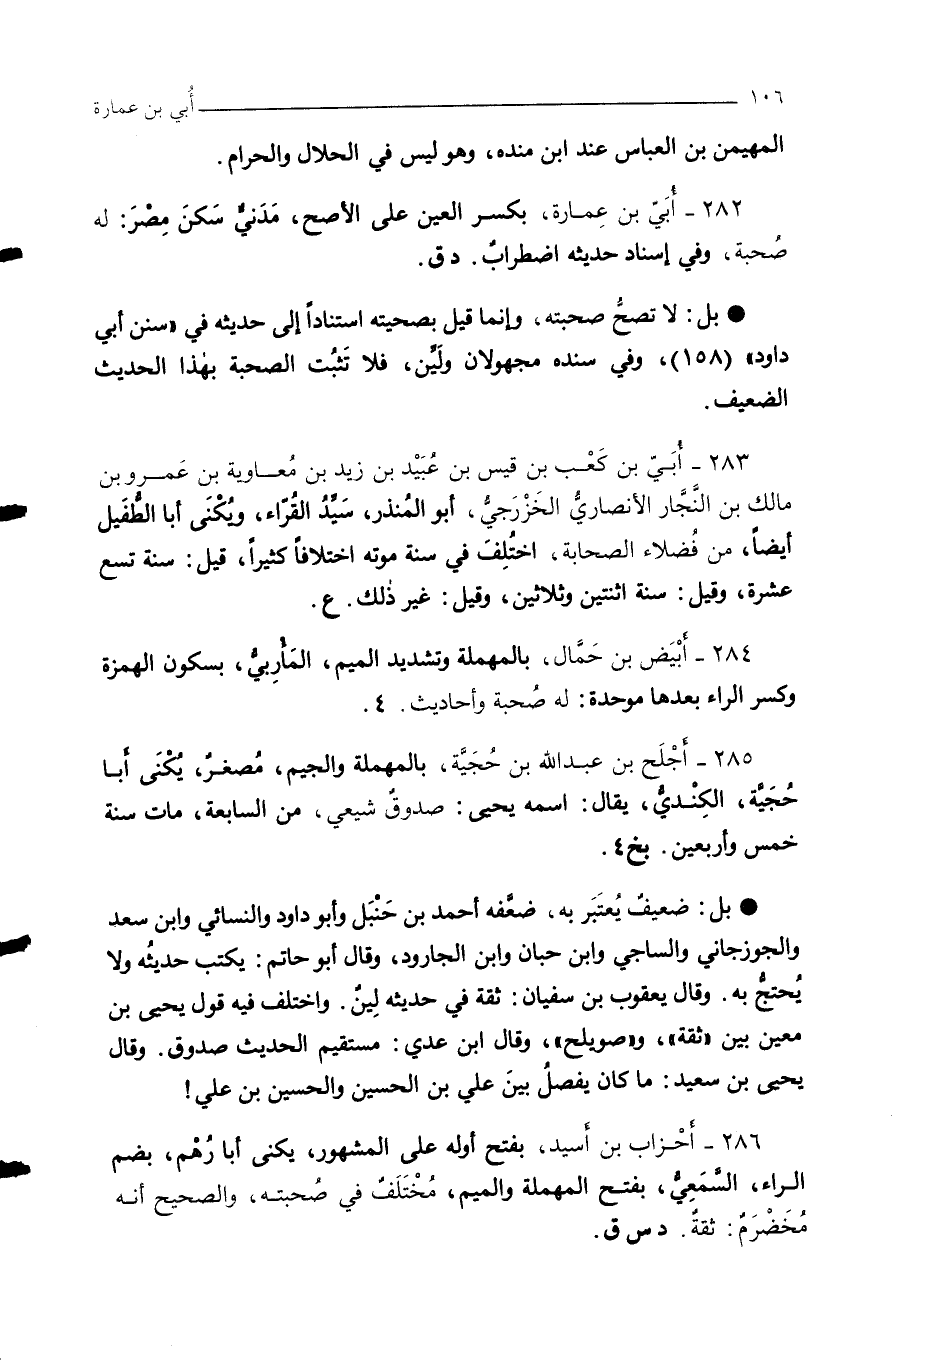 ١٠٦ أُبي بن عمارة
المهيمن بن العباس عند ابن منده، وهو ليس في الحلال والحرام.
٢٨٢ - أُبَيّ بن عِمارة، بكسر العين على الأصح، مَدَنيٌّ سَكنَ مِصْرَ: له
صُحبة، وفي إسناد حديثه اضطرابٌ. د ق.
● بل: لا تصحُّ صحبته، وإنما قيل بصحيته استناداً إلى حديثه في «سنن أبي
داود» (١٥٨)، وفي سنده مجهولان ولَيِّن، فلا تَثبُت الصحبة بهٰذا الحديث
الضعيف.
٢٨٣ - أُبَيّ بن كَعْب بن قيس بن عُبَيْد بن زيد بن مُعاوية بن عَمرو بن
مالك بن النَّجَّار الأنصاريُّ الخَزْرَجيُّ، أبو المُنذر، سَيِّدُ القُرّاء، ويُكْنَى أبا الطُّفَيل
أيضاً، من فُضلاء الصحابة، اختُلِفَ في سنة موته اختلافاً كثيراً، قيل: سنة تسع
عشرة، وقيل: سنة اثنتين وثلاثين، وقيل: غير ذٰلك. ع.
٢٨٤ - أَبْيَض بن حَمَّال، بالمهملة وتشديد الميم، المَأْرِبيُّ، بسكون الهمزة
وكسر الراء بعدها موحدة: له صُحبة وأحاديث. ٤.
٢٨٥ - أَجْلَح بن عبدالله بن حُجَيَّة، بالمهملة والجيم، مُصغرٌ، يُكْنَى أَبا
حُجَيَّة، الكِنْديُّ، يقال: اسمه يحيى: صدوقٌ شيعي، من السابعة، مات سنة
خمس وأربعين. بخ٤.
● بل: ضعيفٌ يُعتَبَر به، ضعَّفه أحمد بن حَنْبَل وأبو داود والنسائي وابن سعد
والجوزجاني والساجي وابن حبان وابن الجارود، وقال أبو حاتم: يكتب حديثُه ولا
يُحتجُّ به. وقال يعقوب بن سفيان: ثقة في حديثه لِينٌ. واختلف فيه قول يحيى بن
معين بين «ثقة»، و«صويلح»، وقال ابن عدي: مستقيم الحديث صدوق. وقال
يحيى بن سعيد: ما كان يفصلُ بينَ علي بن الحسين والحسين بن علي!
٢٨٦ - أَحْزاب بن أَسيد، بفتح أوله على المشهور، يكنى أبا رُهْم، بضم
الراء، السَّمَعِيُّ، بفتح المهملة والميم، مُخْتَلَفٌ في صُحبته، والصحيح أنه
مُخَضْرَمٌ: ثقةٌ. د س ق.